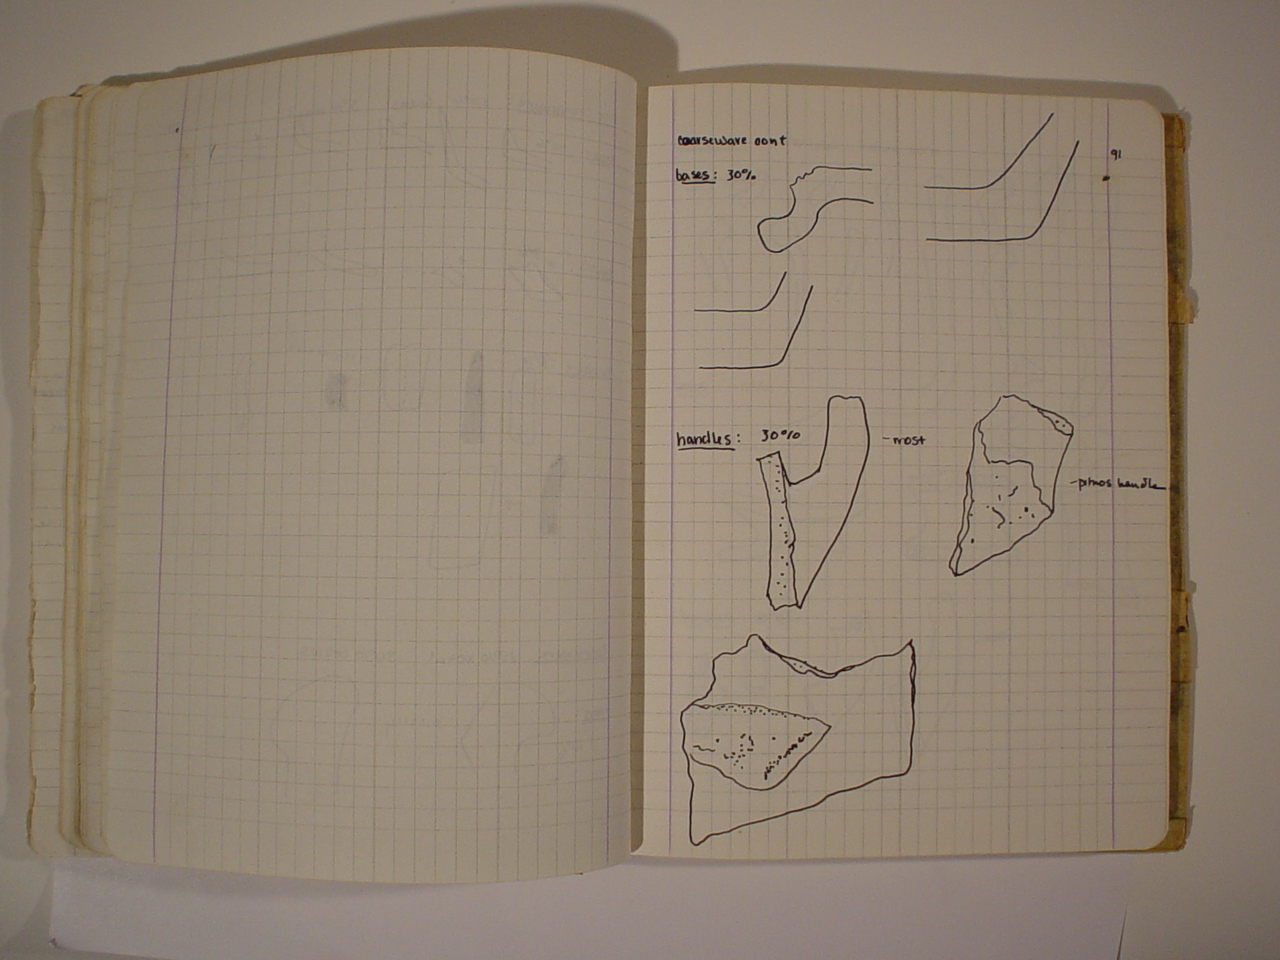 coarseware cont
91
bases: 30%
handles: 30%
-most
-pithos handle